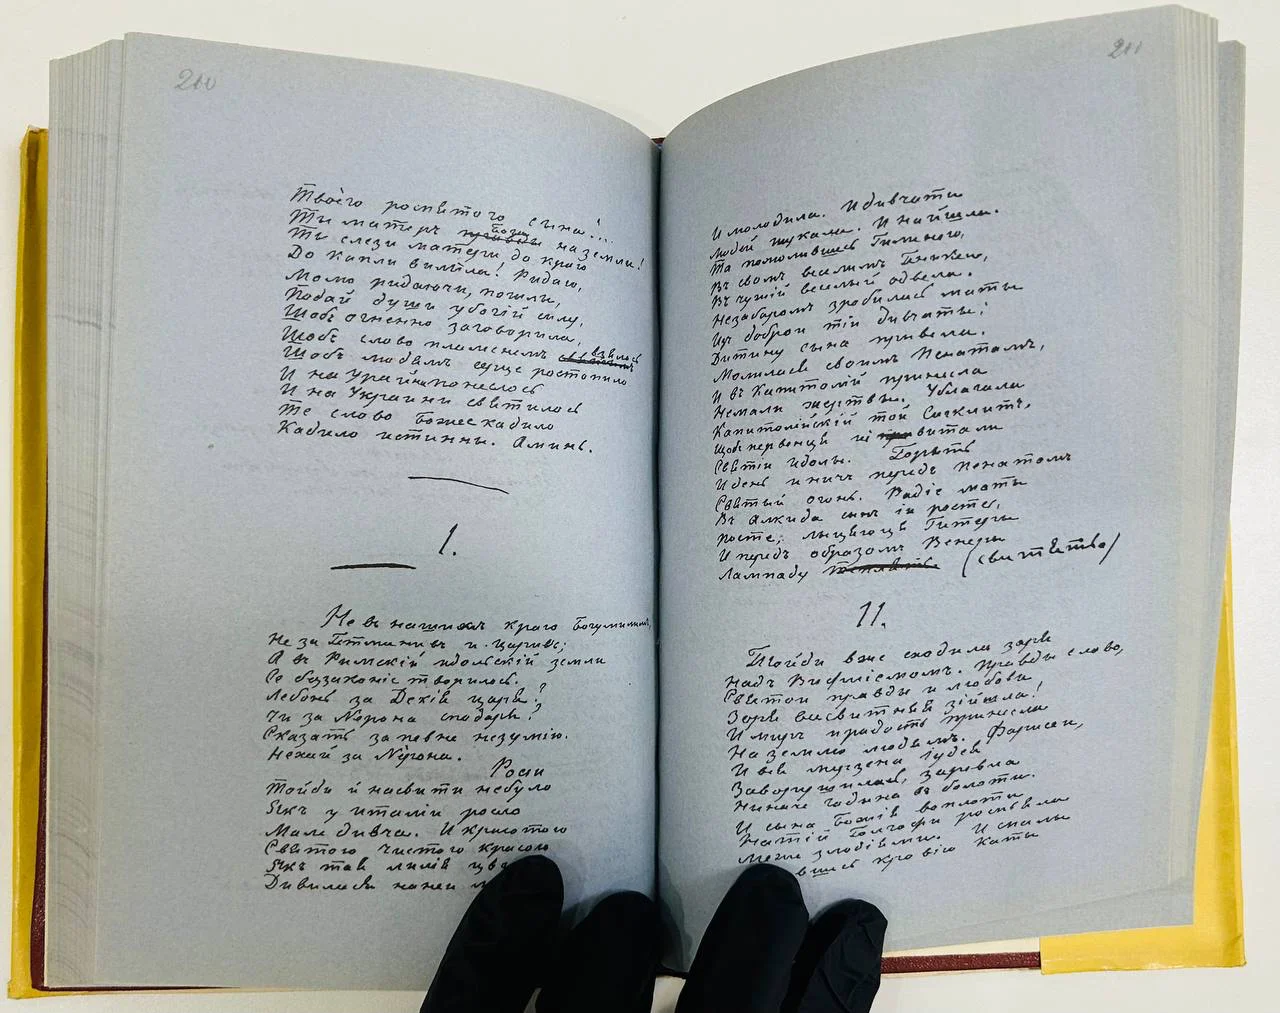 200
Твоѐго роспятого сына!...
Ти матеръ правды Бога на земли!
Ти слези матери до краю
До капли вилила! Ридаю,
Молю ридаючи, пошли,
Подай души убогій силу,
Щобъ огненно заговорила,
Щобъ слово пламенемъ взялось
Щобъ людямъ серце ростопило
И на Украйни понеслось
И на Украини святилось
Те слово Божее кадило
Кадило истинны. Аминь.
1.
Не въ нашимъ краю Богу милимъ,
Не за Гетманивъ и царивъ;
А въ Римскій идольскій земли
Се беззаконіе творилось.
Либонь за Декія царя?
Чи за Нерона сподаря?
Сказать запевне не зумію.
Нехай за Нерона.
Росіи
Тойди й насвити небуло
Якъ у италіи росло
Мале дивча. И красотою
Святою чистою красою
Якъ тая лилія
Дивилася на неи
211
И молодила. И дивчати
Людей шукали. И найшли.
Та помолившись Гименею,
Въ своїмъ веселимъ Гинекею,
Въ чужій веселый одвела.
Незабаромъ зробилась мати
Изъ доброи тіи дивчати;
Дитину сына привела.
Молилася своимъ Пенатамъ,
И въ Капитолій принесла
Немали жертвы. Ублагала
Капитолійскій той Синклитъ,
Щобъ первенця іи витали
Святіи идолы. Горить
И день и ничъ передъ Пенатомъ
Святый огонь. Радіе мати
Въ Алкида сынъ іи росте,
Росте, лыцяюця Гетеры
И передъ образомъ Венеры
Лампаду (святитво)
11.
Тойди вже сходила зоря
Надъ Вифліемомъ. Правды слово,
Святои правды и любови
Зоря всесвитняя зійшла!
И миръ и радость принесла
На землю людямъ. Фарисеи,
И вся мизерна Іудея
Заворушилась, заревла
Ниначе гадина въ болоти.
И сына Божія во плоти
На тій Голгофи розпъяла
Межи злодіями. И спалы
кровію каты